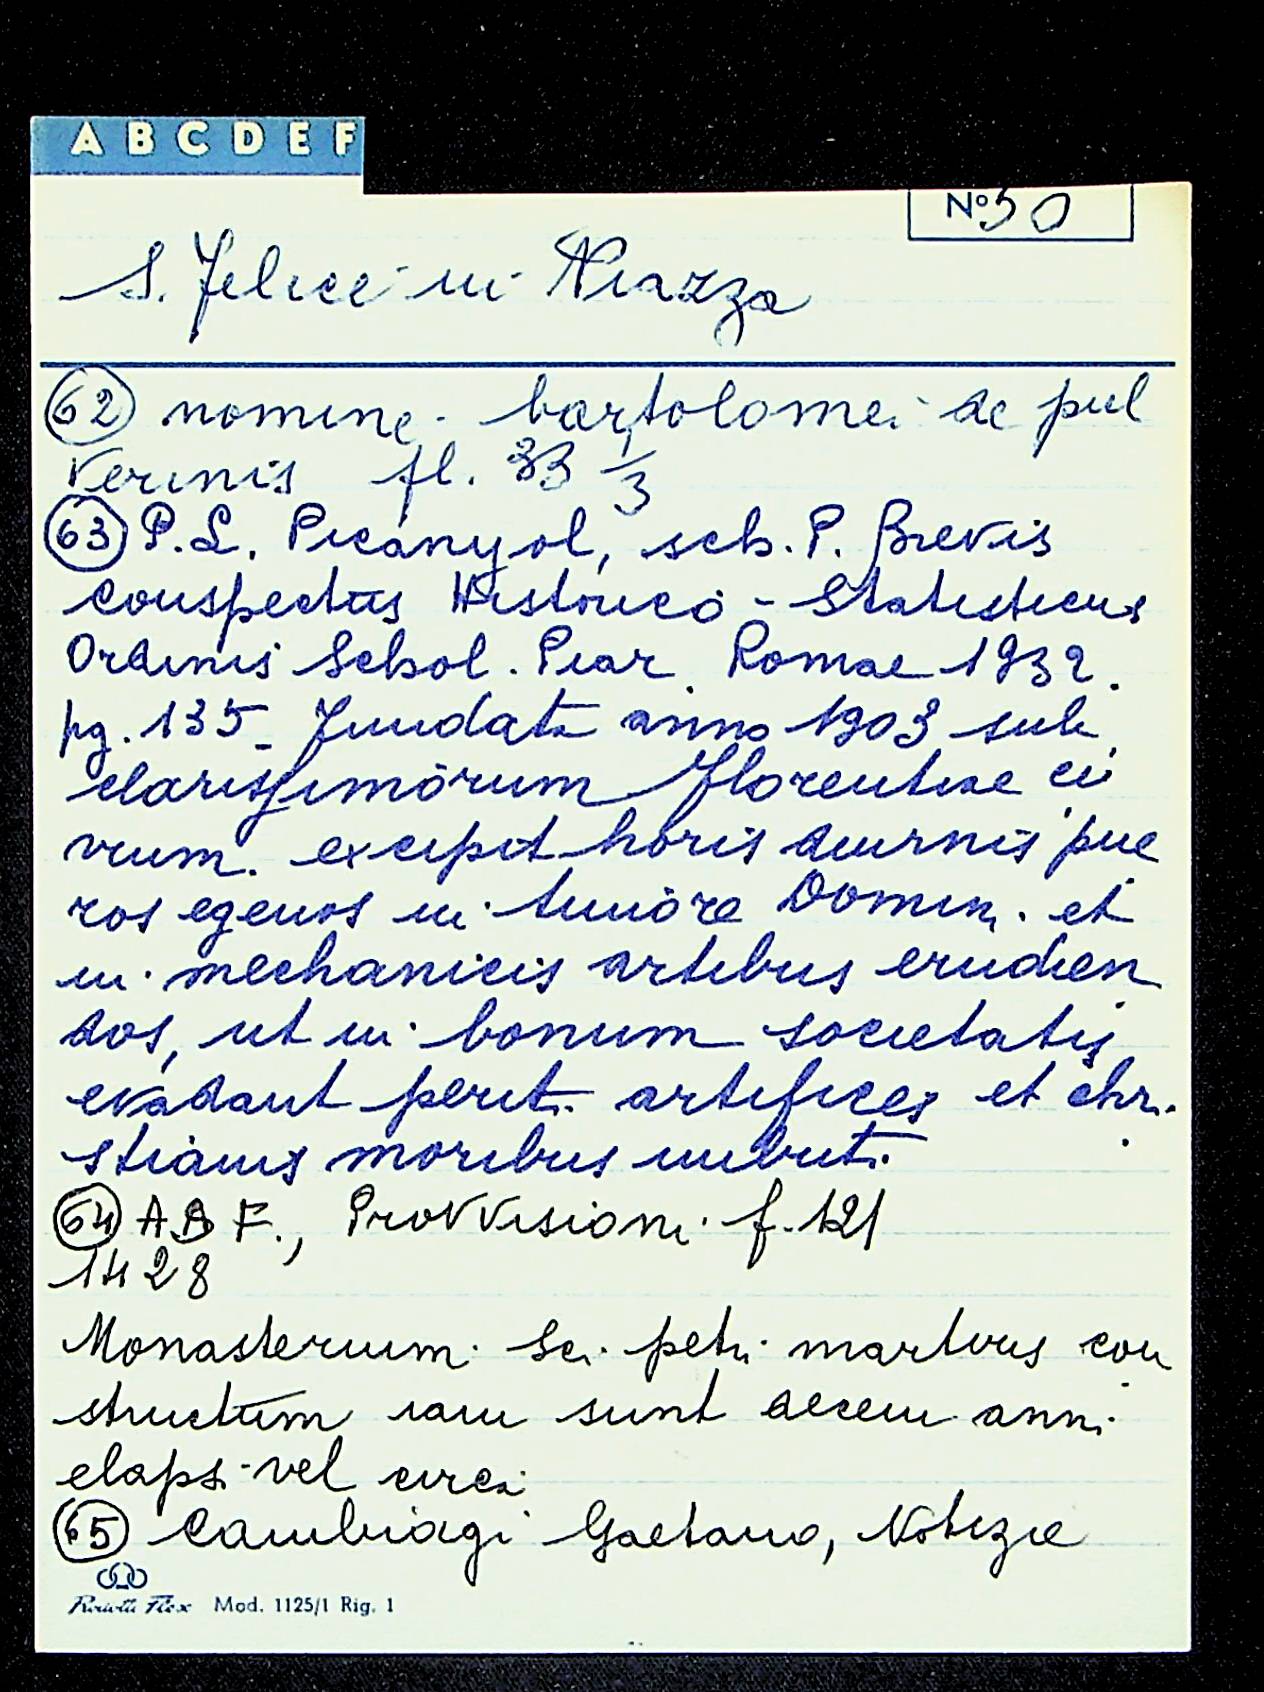 A B C D E F
Nº 50
S. Felice in Piazza
62 nomine bartolomei de pul
verinis fl. 33 1/3
63 P. L. Picanyol, sch. P. Brevis
conspectus Historico - Statisticus
Ordinis Schol. Piar. Romae 1932.
pg. 135 - Fundata anno 1903 sub
clarissimorum Florentiae ci
vium. excipit horis diurnis pue
ros egenos in timore Domini et
in mechanicis artibus erudien
dos, ut in bonum societatis
evadant periti artifices et chri
stianis moribus imbuti.
64 A B F., Provvisioni f. 121
1428
Monasterium sci. petri martiris con
structum iam sunt decem anni
elapsi vel circa
65 Cambiagi Gaetano, Notizie
Mod. 1125/1 Rig. 1